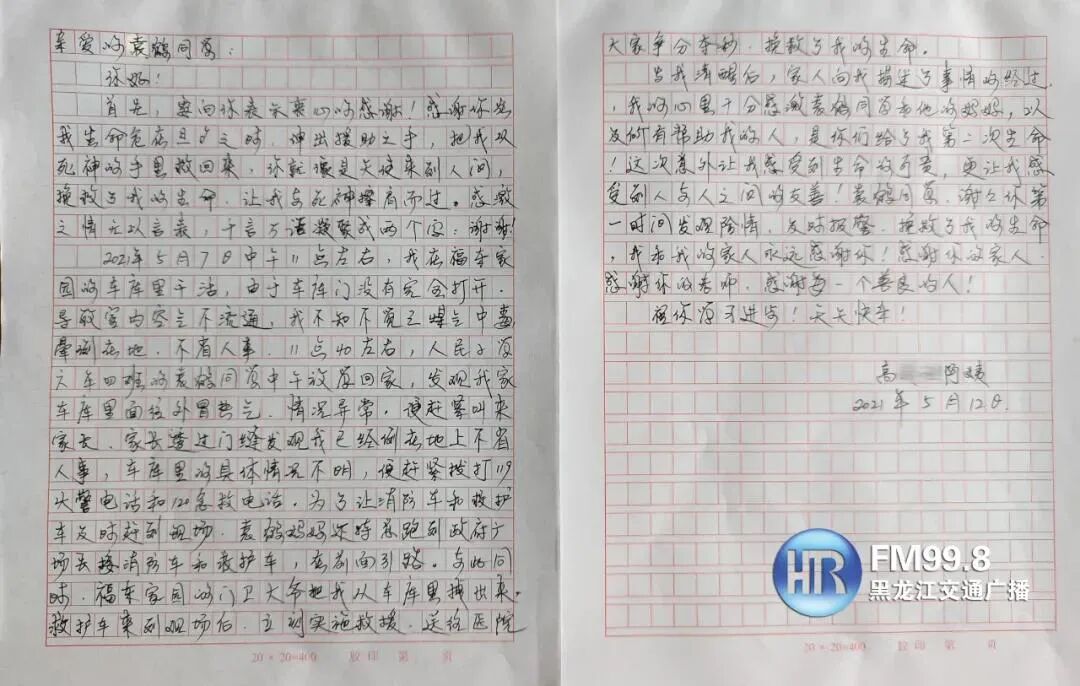 亲爱的袁鹤同学：
你好！
首先，要向你表示衷心的感谢！感谢你在
我生命危在旦夕之时，伸出援助之手，把我从
死神的手里救回来，你就像是天使来到人间，
挽救了我的生命，让我与死神擦肩而过。感激
之情无以言表，千言万语凝聚成两个字：谢谢！
2021年5月7日中午11点左右，我在福东家
园的车库里干活，由于车库门没有完全打开，
导致室内空气不流通，我不知不觉已煤气中毒
晕倒在地，不省人事。11点40左右，人民小学
六年四班的袁鹤同学中午放学回家，发现我家
车库里面往外冒热气，情况异常，便赶紧叫来
家长，家长透过门缝发现我已经倒在地上不省
人事，车库里的具体情况不明，便赶紧拨打119
火警电话和120急救电话，为了让消防车和救护
车及时赶到现场，袁鹤妈妈还特意跑到政府广
场去接消防车和救护车，在前面引路。与此同
时，福东家园的门卫大爷把我从车库里拽出来。
救护车来到现场后，立刻实施救援，送往医院
20×20=400 胶印 第 页
大家争分夺秒，挽救了我的生命。
当我清醒后，家人向我描述了事情的经过，
，我的心里十分感激袁鹤同学和他的妈妈，以
及所有帮助我的人，是你们给了我第二次生命
！这次意外让我感受到生命的可贵，更让我感
受到人与人之间的友善！袁鹤同学，谢谢你第
一时间发现险情，及时报警，挽救了我的生命
，我和我的家人永远感谢你！感谢你的家人，
感谢你的老师，感谢每一个善良的人！
祝你学习进步！天天快乐！
高 阿姨
2021年5月12日.
20×20=400 胶印 第 页
HR FM99.8
黑龙江交通广播